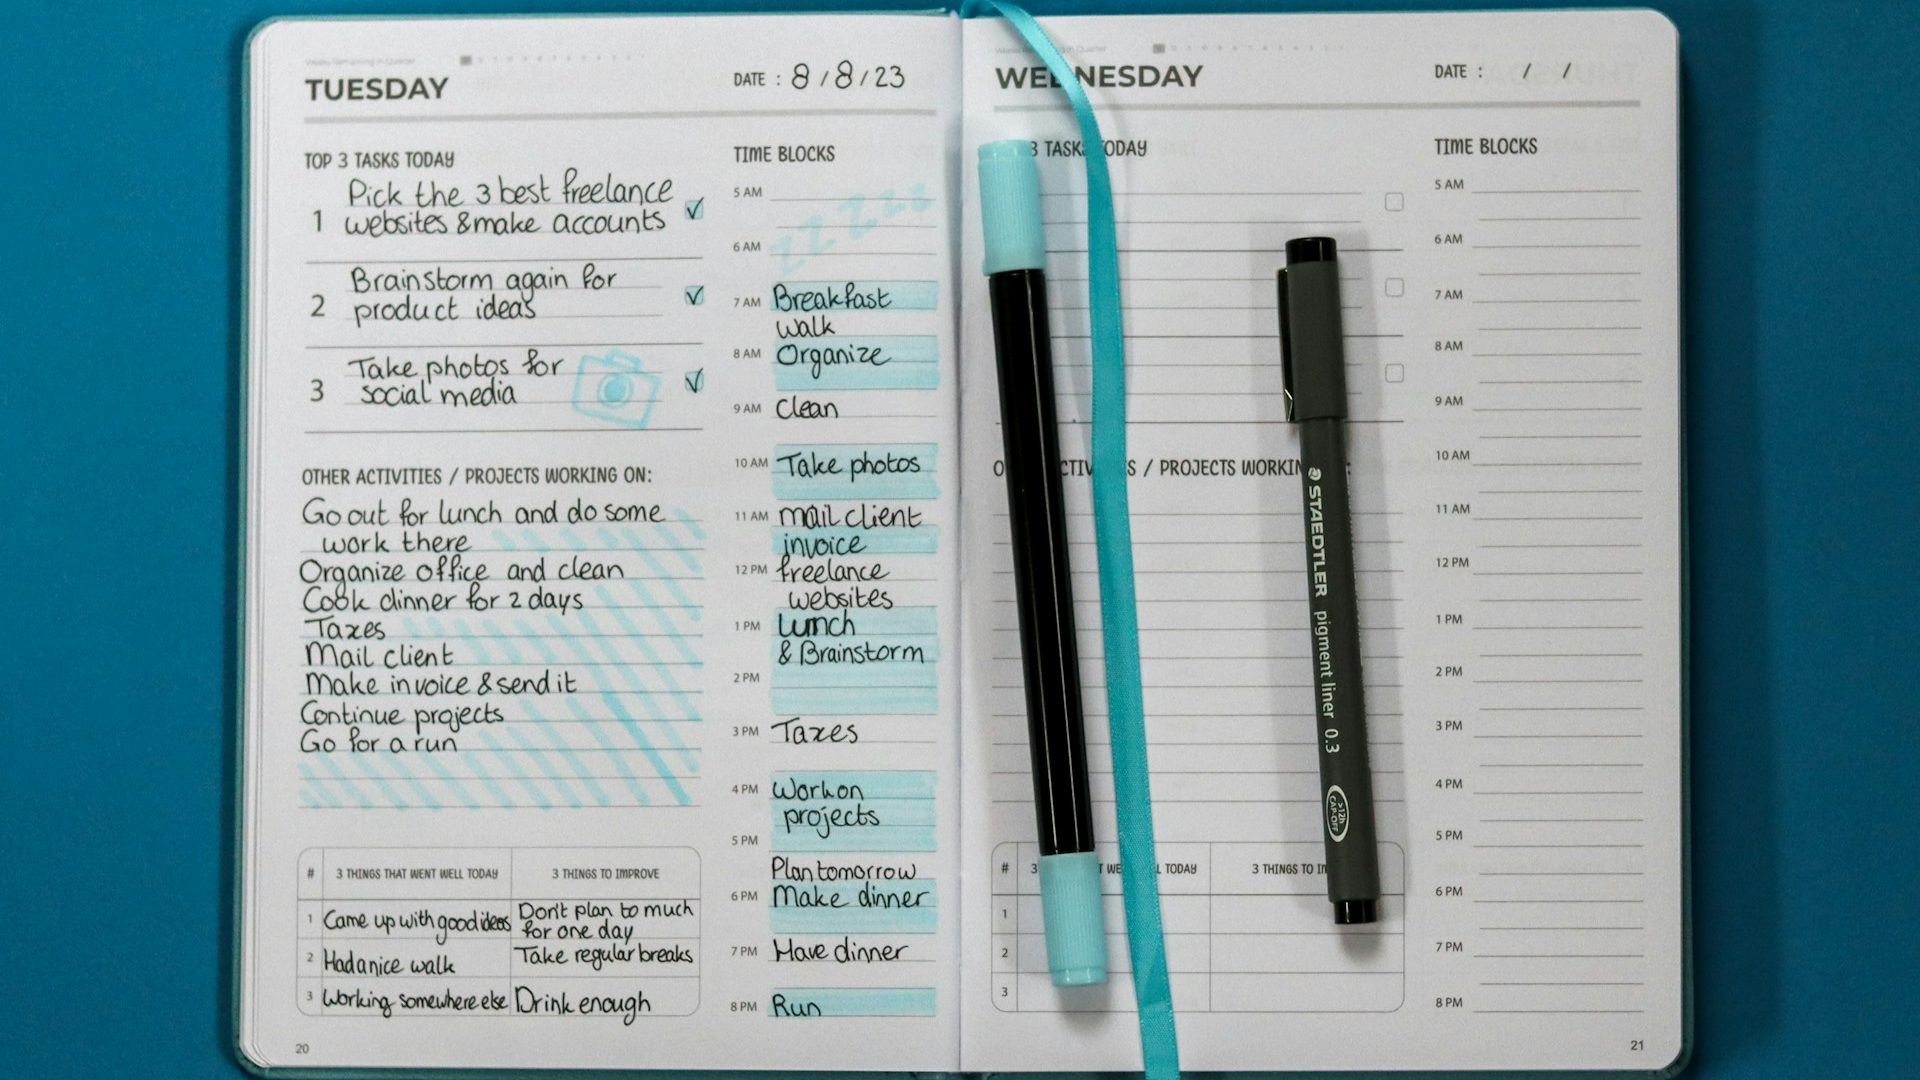 Weeks Remaining in Quarter
TUESDAY
DATE : 8 / 8 / 23
TOP 3 TASKS TODAY
1 Pick the 3 best freelance
websites & make accounts
2 Brainstorm again for
product ideas
3 Take photos for
social media
OTHER ACTIVITIES / PROJECTS WORKING ON:
Go out for lunch and do some
work there
Organize office and clean
Cook dinner for 2 days
Taxes
Mail client
Make invoice & send it
Continue projects
Go for a run
# 3 THINGS THAT WENT WELL TODAY 3 THINGS TO IMPROVE
1 Came up with good ideas Don't plan to much
for one day
2 Had a nice walk Take regular breaks
3 Working somewhere else Drink enough
20
TIME BLOCKS
5 AM zzzzz
6 AM
7 AM Breakfast
walk
8 AM Organize
9 AM Clean
10 AM Take photos
11 AM Mail client
invoice
12 PM freelance
websites
1 PM Lunch
& Brainstorm
2 PM
3 PM Taxes
4 PM Work on
projects
5 PM
Plan tomorrow
6 PM Make dinner
7 PM Have dinner
8 PM Run
WEDNESDAY
DATE : / /
3 TASKS TODAY
/ PROJECTS WORKIN
# 3 WELL TODAY 3 THINGS TO
1
2
3
TIME BLOCKS
5 AM
6 AM
7 AM
8 AM
9 AM
10 AM
11 AM
12 PM
1 PM
2 PM
3 PM
4 PM
5 PM
6 PM
7 PM
8 PM
21
STAEDTLER pigment liner 0.3
>12h
CAP-OFF